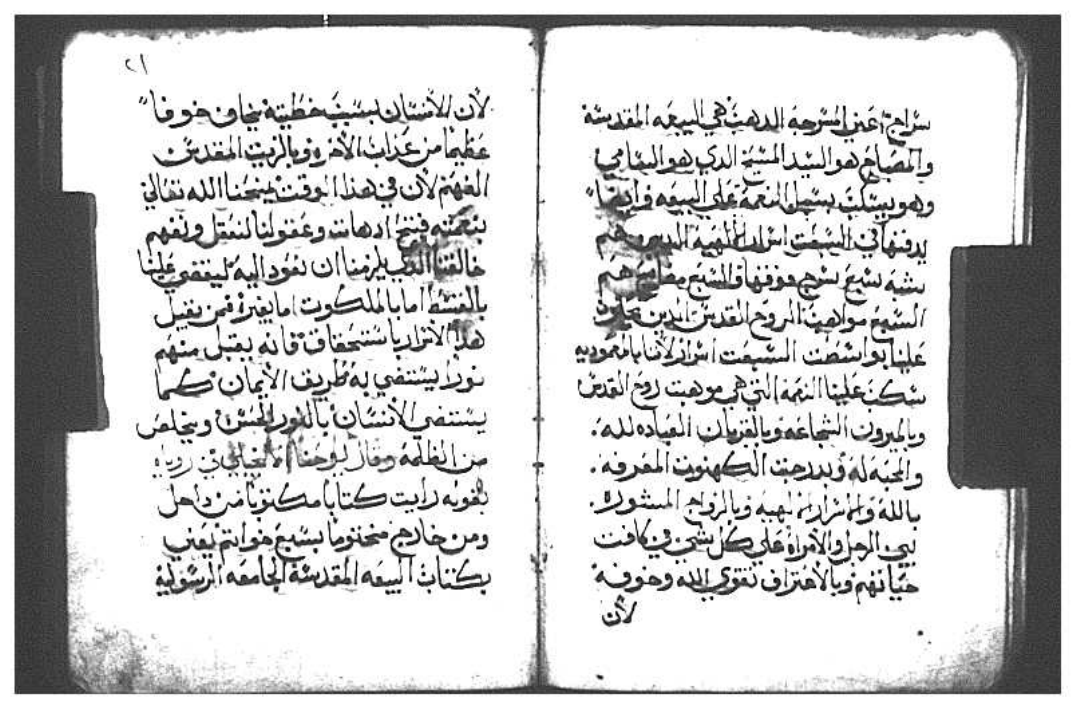 سراج اعني المسرجه الدهب هي البيعه المقدسة
والمصباح هو السيد المسيح الدي هو السامي
وهو يسكب بسبل النعمة على البيعه وايضا
يدفنها في السبعت اسرار الالهيه الدين هم
بشبه سبع سرج فوقها والسبع مصابيح هم
السبع مواهب الروح القدس الدين
علينا بواسطت السبعت اسرار لاننا بالمعموديه
سكنة علينا النعمه التي هي موهبت روح القدس
وبالميرون الشجاعه وبالقربان العباده لله.
والمحبه له وبدرجت الكهنوت المعرفه.
بالله والاسرار الالهيه وبالزواج المشوره.
لبني الرجل والامراه على كل شي في كافت
حياتهم وبالاعتراف تقوى الله وخوفه
لان
٢١
لان الانسان بسبب خطيته يخاف خوفا
عظيما من عذاب الاخره وبالزيت المقدس
الفهم لان في هذا الوقت يمنحنا الله تعالى
بنعمته فيفتح ادهاننا وعقولنا لنعقل ونفهم
خالقنا الدي يلزمنا ان نعود اليه ليقضي علينا
بالقسط اما بالملكوت اما بغيره فمن يقبل
هذا الاسرار باستحقاق فانه يقبل منهم
نورا يستضي به طريق الايمان كما
يستضي الانسان بالنور الحسي ويخلص
من الظلمة وقال يوحنا الانجيلي في روياه
بقوله رايت كتابا مكتوبا من داخل
ومن خارج مختوما بسبع خواتم يعني
بكتاب البيعه المقدسة الجامعه الرسولية